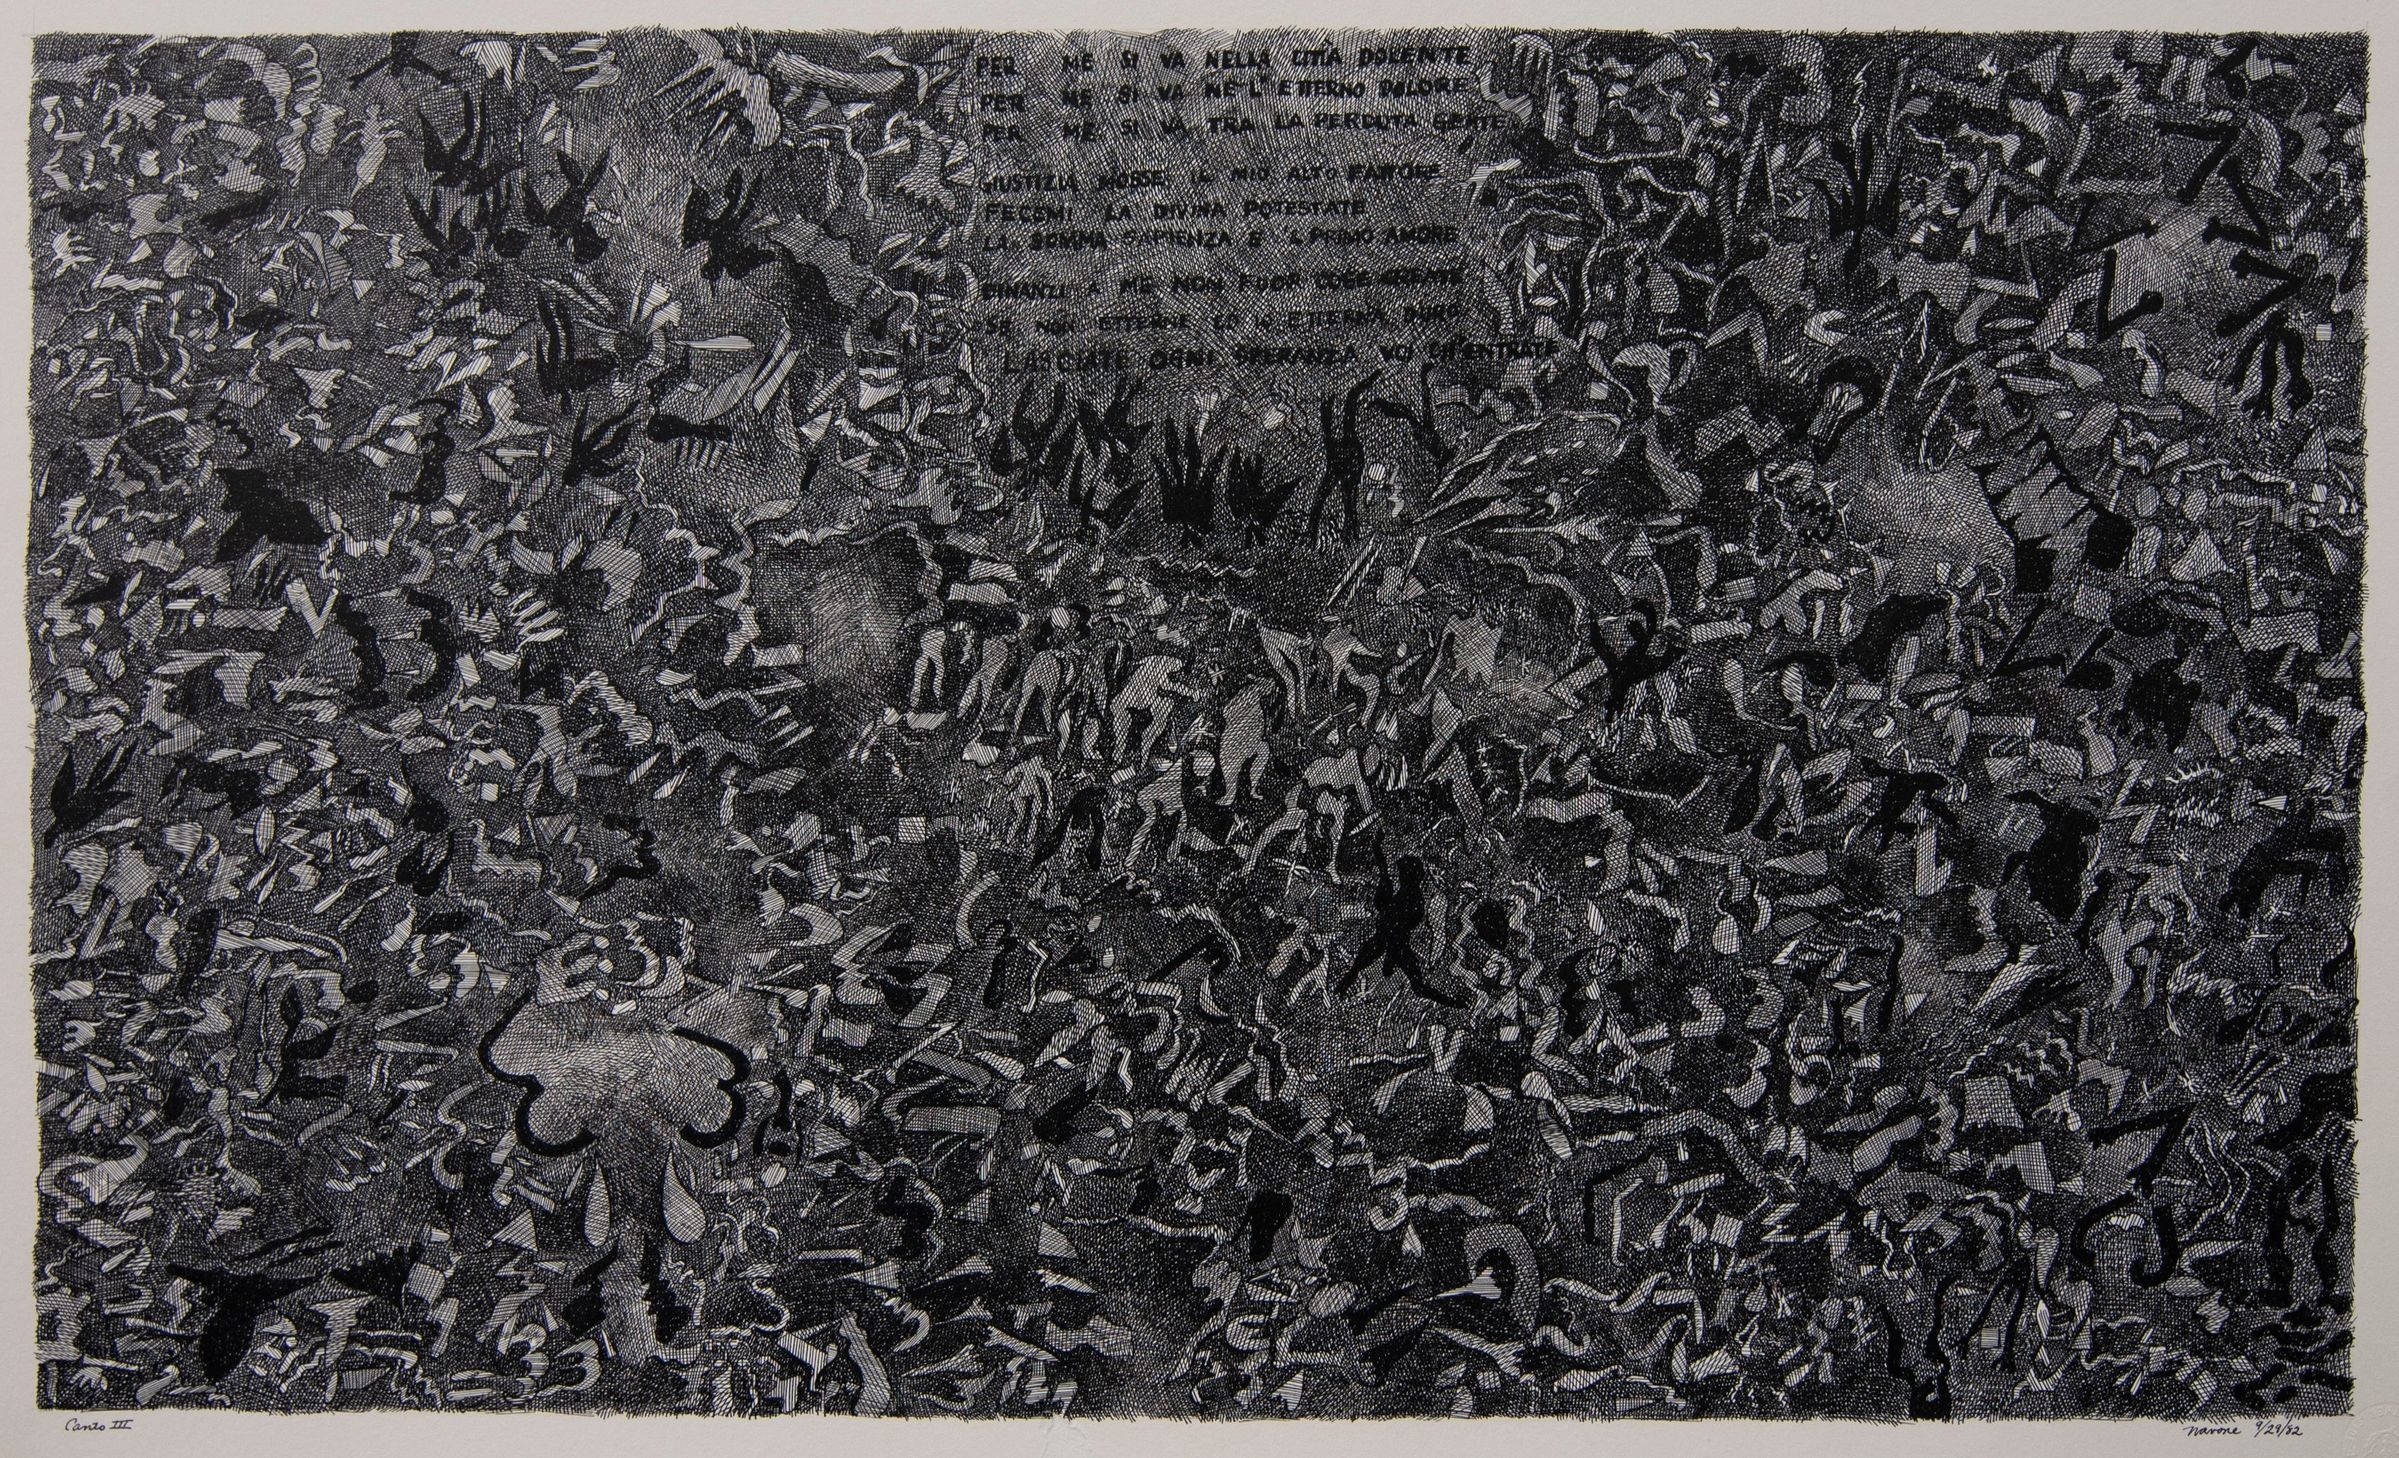 PER ME SI VA NELLA CITTÀ DOLENTE
PER ME SI VA NE L'ETTERNO DOLORE
PER ME SI VA TRA LA PERDUTA GENTE
GIUSTIZIA MOSSE IL MIO ALTO FATTORE
FECEMI LA DIVINA POTESTATE
LA SOMMA SAPIENZA E 'L PRIMO AMORE
DINANZI A ME NON FUOR COSE CREATE
SE NON ETTERNE ED IO ETTERNA DURO
LASCIATE OGNI SPERANZA VOI CH'ENTRATE
Canto III
Navone 9/29/82